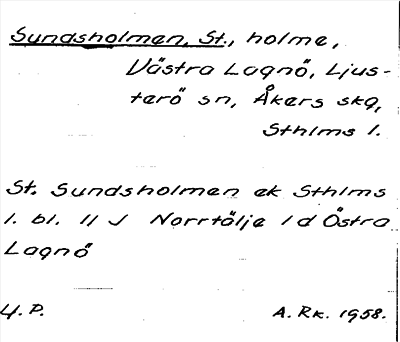 Sundsholmen, St., holme,
Västra Lagnö, Ljus-
terö sn, Åkers skg,
Sthlms l.
St. Sundsholmen ek Sthlms
l. bl. 11 J Norrtälje 1 d Östra
Lagnö
U.P. A. Rk. 1958.